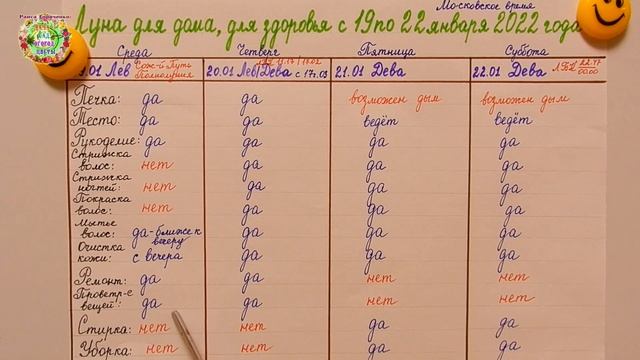 Московское время
Раиса Горяченко:
САД
ОГОРОД
ЦВЕТЫ
Луна для дома, для здоровья с 19 по 22 января 2022 года
Среда Четверг Пятница Суббота
9.01 Лев Сож-й Путь Полнолуния 20.01 Лев/Дева с 17ч.03 21.01 Дева 22.01 Дева
Печка: да да возможен дым возможен дым
Тесто: да да ведёт ведёт
Рукоделие: да да да да
Стрижка волос: нет да да да
Стрижка ногтей: нет да да да
Покраска волос: нет да да да
Мытье волос: да-ближе к вечеру да да да
Очистка кожи: с вечера да да да
Ремонт: да да нет нет
Проветр-е вещей: да да нет нет
Стирка: нет нет да да
Уборка: нет нет да да